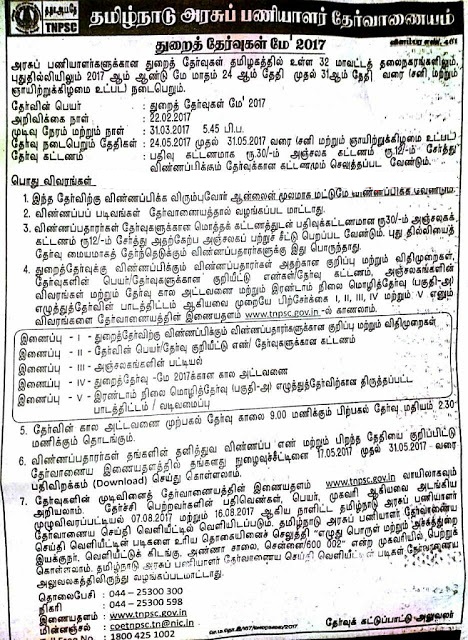 தமிழ்நாடு அரசுப் பணியாளர் தேர்வாணையம்
TNPSC
துறைத் தேர்வுகள் மே' 2017
அரசுப் பணியாளர்களுக்கான துறைத் தேர்வுகள் தமிழகத்தில் உள்ள 32 மாவட்டத் தலைநகரங்களிலும்,
புதுதில்லியிலும் 2017 ஆம் ஆண்டு மே மாதம் 24 ஆம் தேதி முதல் 31ஆம் தேதி வரை (சனி மற்றும்
ஞாயிற்றுக்கிழமை உட்பட) நடைபெறும்.
தேர்வின் பெயர் : துறைத் தேர்வுகள் மே' 2017
அறிவிக்கை நாள் : 22.02.2017
முடிவு நேரம் மற்றும் நாள் : 31.03.2017 5.45 பி.ப.
தேர்வு நடைபெறும் தேதிகள் : 24.05.2017 முதல் 31.05.2017 வரை (சனி மற்றும் ஞாயிற்றுக்கிழமை உட்பட)
தேர்வு கட்டணம் : பதிவு கட்டணமாக ரூ.30/-ம் அஞ்சலக கட்டணம் ரூ.12/-ம் சேர்த்து
விண்ணப்பிக்கும் தேர்வுக்கான கட்டணமும் செலுத்தப்பட வேண்டும்.
பொது விவரங்கள்
1. இந்த தேர்விற்கு விண்ணப்பிக்க விரும்புவோர் ஆன்லைன் மூலமாக மட்டுமே விண்ணப்பிக்க வேண்டும்.
2. விண்ணப்பப் படிவங்கள் தேர்வாணையத்தால் வழங்கப்பட மாட்டாது.
3. விண்ணப்பதாரர்கள் தேர்வுகளுக்கான மொத்தக் கட்டணத்துடன் பதிவுக்கட்டணமான ரூ30/-ம் அஞ்சலகக்
கட்டணம் ரூ12/-ம் சேர்த்து அதற்கேற்ப அஞ்சலகப் பற்றுச் சீட்டு பெறப்பட வேண்டும். புது தில்லியைத்
தேர்வு மையமாகத் தேர்ந்தெடுக்கும் விண்ணப்பதாரர்களுக்கும் இது பொருந்தாது.
4. துறைத்தேர்வுக்கு விண்ணப்பிக்கும் விண்ணப்பதாரர்கள் அதற்கான குறிப்பு மற்றும் விதிமுறைகள்,
தேர்வுகளின் பெயர்/தேர்வுகளுக்கான குறியீட்டு எண்கள்/தேர்வு கட்டணம், அஞ்சலகங்களின்
விவரங்கள் மற்றும் தேர்வு கால அட்டவணை மற்றும் இரண்டாம் நிலை மொழித்தேர்வு (பகுதி-அ)
எழுத்துத்தேர்வின் பாடத்திட்டம் ஆகியவை முறையே பிற்சேர்க்கை I, II, III, IV மற்றும் V எனும்
விவரங்களை தேர்வாணையத்தின் இணையதளம் www.tnpsc.gov.in -ல் காணலாம்.
இணைப்பு - I - துறைத்தேர்விற்கு விண்ணப்பிக்கும் விண்ணப்பதாரர்களுக்கான குறிப்பு மற்றும் விதிமுறைகள்
இணைப்பு - II - தேர்வின் பெயர்/தேர்வு குறியீட்டு எண்/ தேர்வுகளுக்கான கட்டணம்
இணைப்பு - III - அஞ்சலகங்களின் பட்டியல்
இணைப்பு - IV - துறைத்தேர்வு -மே 2017க்கான கால அட்டவணை
இணைப்பு - V - இரண்டாம் நிலை மொழித்தேர்வு (பகுதி-அ) எழுத்துத்தேர்விற்கான திருத்தப்பட்ட
பாடத்திட்டம் / வடிவமைப்பு
5. தேர்வின் கால அட்டவணை முற்பகல் தேர்வு காலை 9.00 மணிக்கும் பிற்பகல் தேர்வு மதியம் 2.30
மணிக்கும் தொடங்கும்.
6. விண்ணப்பதாரர்கள் தங்களின் தனித்துவ விண்ணப்ப எண் மற்றும் பிறந்த தேதியை குறிப்பிட்டு
தேர்வாணைய இணையதளத்தில் தங்களது நுழைவுச்சீட்டினை 17.05.2017 முதல் 31.05.2017 வரை
பதிவிறக்கம் (Download) செய்து கொள்ளலாம்.
7. தேர்வுகளின் முடிவினைத் தேர்வாணையத்தின் இணையதளம் www.tnpsc.gov.in வாயிலாகவும்
அறியலாம். தேர்ச்சி பெற்றவர்களின் பதிவெண்கள், பெயர், முகவரி ஆகியவை அடங்கிய
முழுவிவரப்பட்டியல் 07.08.2017 மற்றும் 16.08.2017 ஆகிய நாளிட்ட தமிழ்நாடு அரசுப் பணியாளர்
தேர்வாணைய செய்தி வெளியீட்டில் வெளியிடப்படும். தமிழ்நாடு அரசுப் பணியாளர் தேர்வாணைய
செய்தி வெளியீட்டின் படிகளை உரிய தொகையினைச் செலுத்தி "எழுது பொருள் மற்றும் அச்சுத்துறை
இயக்குநர், வெளியீட்டுக் கிடங்கு, அண்ணா சாலை, சென்னை/600 002" என்ற முகவரியில் பெற்றுக்
கொள்ளலாம். தமிழ்நாடு அரசுப் பணியாளர் தேர்வாணைய செய்தி வெளியீட்டின் படிகள் தேர்வாணைய
அலுவலகத்திலிருந்து வழங்கப்படமாட்டாது.
தொலைபேசி : 044 - 25300 300
நிகரி : 044 - 25300 598
இணையதளம் : www.tnpsc.gov.in
மின்னஞ்சல் : coetnpsc.tn@nic.in
: 1800 425 1002
தேர்வுக் கட்டுப்பாட்டு அலுவலர்